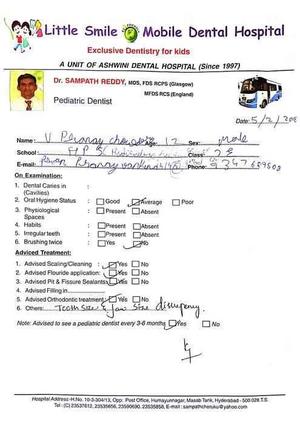 Little Smile Mobile Dental Hospital
Exclusive Dentistry for kids
A UNIT OF ASHWINI DENTAL HOSPITAL (Since 1997)
Dr. SAMPATH REDDY, MDS, FDS RCPS (Glasgow)
MFDS RCS (England)
Pediatric Dentist
Date: 5/2/200
Name: V Pranay Age: 12 Sex: Male
School: HPS Class:
E-mail: Phone: 9347
On Examination:
1. Dental Caries in (Cavities)
2. Oral Hygiene Status : Good Average Poor
3. Physiological Spaces : Present Absent
4. Habits : Present Absent
5. Irregular teeth : Present Absent
6. Brushing twice : Yes No
Adviced Treatment:
1. Advised Scaling/Cleaning : Yes No
2. Advised Flouride application: Yes No
3. Advised Pit & Fissure Sealants Yes No
4. Advised Filling in
5. Advised Orthodontic treatment: Yes No
6. Others: Tooth size & jaw size discrepancy.
Note: Advised to see a pediatric dentist every 3-6 months Yes No
Hospital Address-H.No. 10-3-304/13, Opp. Post Office, Humayunnagar, Masab Tank, Hyderabad - 500 028 T.S.
Tel: (C) 23537612, 23535656, 23590690, 23535858, E-mail: sampathcheruku@yahoo.com